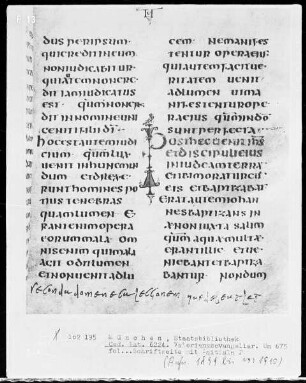 dus per ipsum·
qui credit in eum
non iudicatur
qui autem non cre
dit iam iudicatus
est quia non cre
dit in nomine uni
geniti fili di·
hoc est autem iudi
cium quia lux
uenit in hunc mun
dum et dilexe
runt homines po
tius tenebras
quam lumen e
rant enim opera
eorum mala om
nis enim qui mala
agit odit lumen
et non uenit ad lu
cem ne manifes
tentur opera eius·
qui autem facit ue
ritatem uenit
ad lumen ut ma
nifestentur ope
ra eius quia in do
sunt perfecta
Post haec uenit ihs
et discipuli eius
in iudaeam terra
et bat
erat autem iohan
nes baptizans in
aenon iuxta salim
quia aquae multae
erant illic et ue
niebant et bapti
zabantur· nondum
195 München, Staatsbibliothek
Cod. Lat. 6224. Valerianusevangeliar. Um 675
fol... Schriftseite mit Initiale P